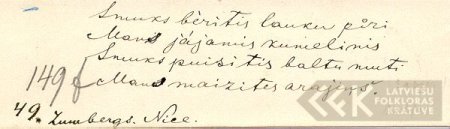 Smuks bēritis lauku pēri
Mans jājamis kumelinis
Smuks puisitis baltu muti
Mans maizites arajiņš.
149f
49. Zumbergs. Nīce.
LATVIEŠU
FOLKLORAS
KRĀTUVE